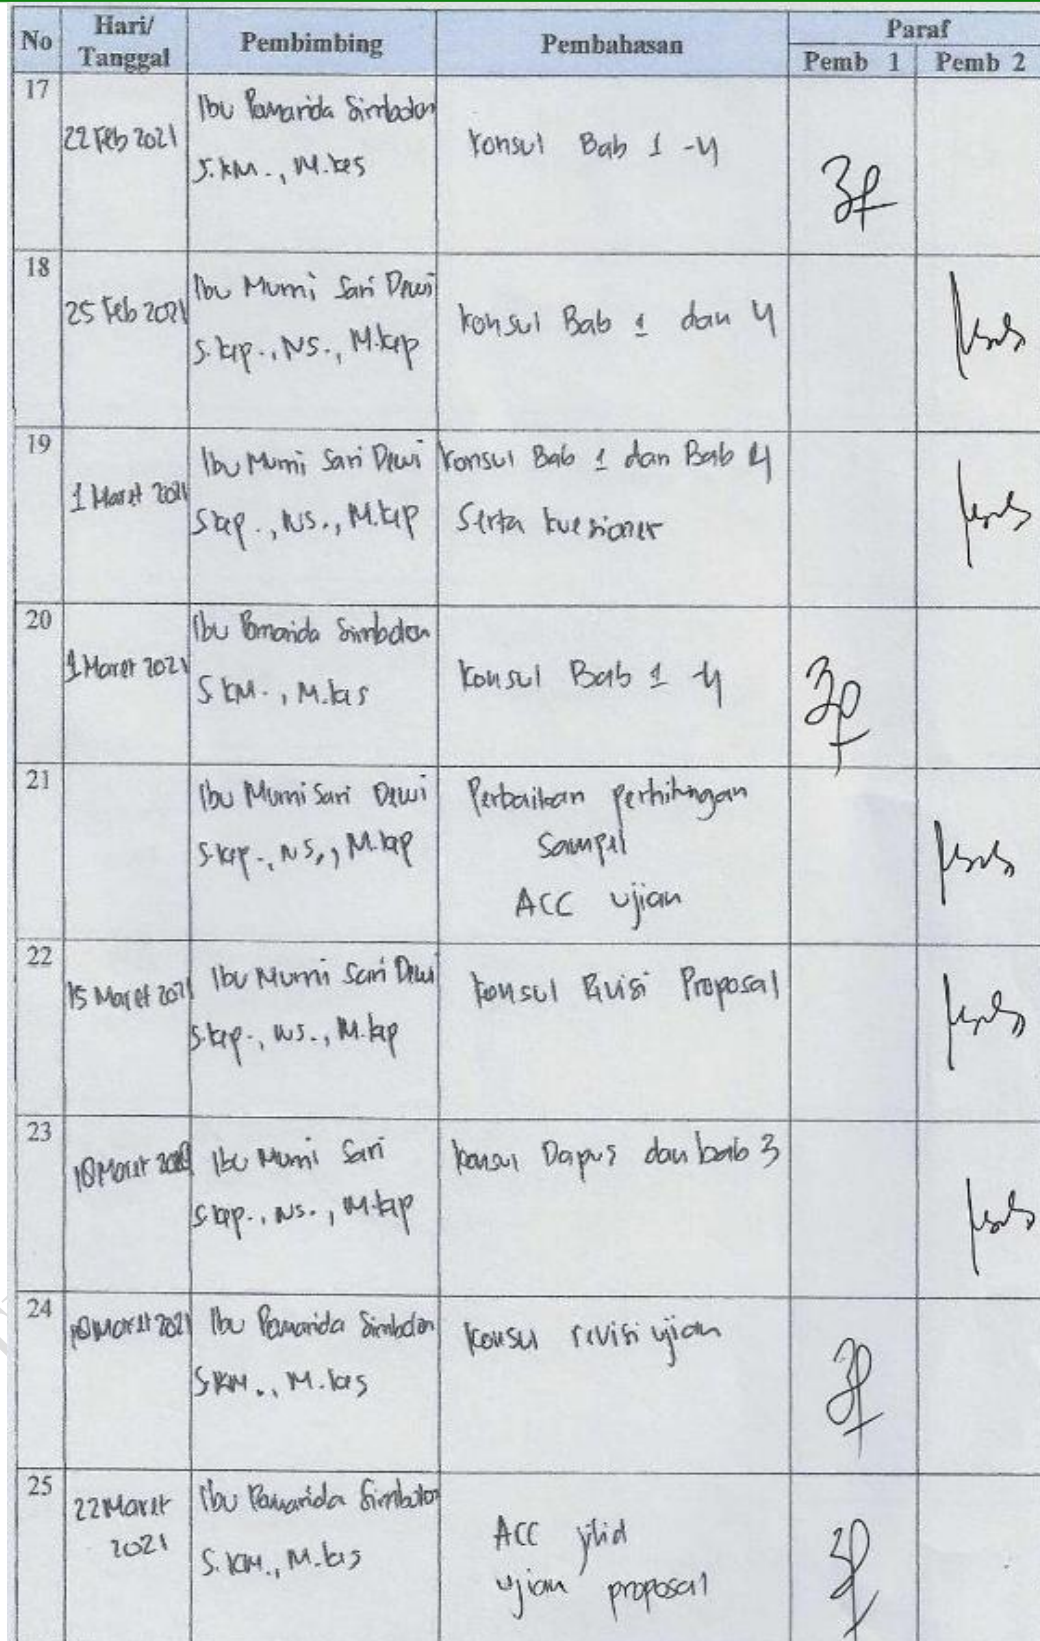 No Hari/ Tanggal Pembimbing Pembahasan Paraf
Pemb 1 Pemb 2
17
22 Feb 2021
Ibu Pomarida Simbolon
S.KM., M.kes
Konsul Bab 1 - 4
18
25 Feb 2021
Ibu Murni Sari Dewi
S.kep., NS., M.kep
Konsul Bab 1 dan 4
19
1 Maret 2021
Ibu Murni Sari Dewi
S.kep., NS., M.kep
Konsul Bab 1 dan Bab 4
Serta kuesioner
20
1 Maret 2021
Ibu Pomarida Simbolon
S.KM., M.kes
Konsul Bab 1 - 4
21
Ibu Murni Sari Dewi
S.kep., NS., M.kep
Perbaikan perhitungan
Sampel
ACC ujian
22
15 Maret 2021
Ibu Murni Sari Dewi
S.kep., NS., M.kep
Konsul Revisi Proposal
23
Maret
Ibu Murni Sari
S.kep., NS., M.kep
Konsul Dapus dan bab 3
24
Maret 2021
Ibu Pomarida Simbolon
S.KM., M.kes
Konsul revisi ujian
25
22 Maret
2021
Ibu Pomarida Simbolon
S.KM., M.kes
ACC jilid
ujian proposal